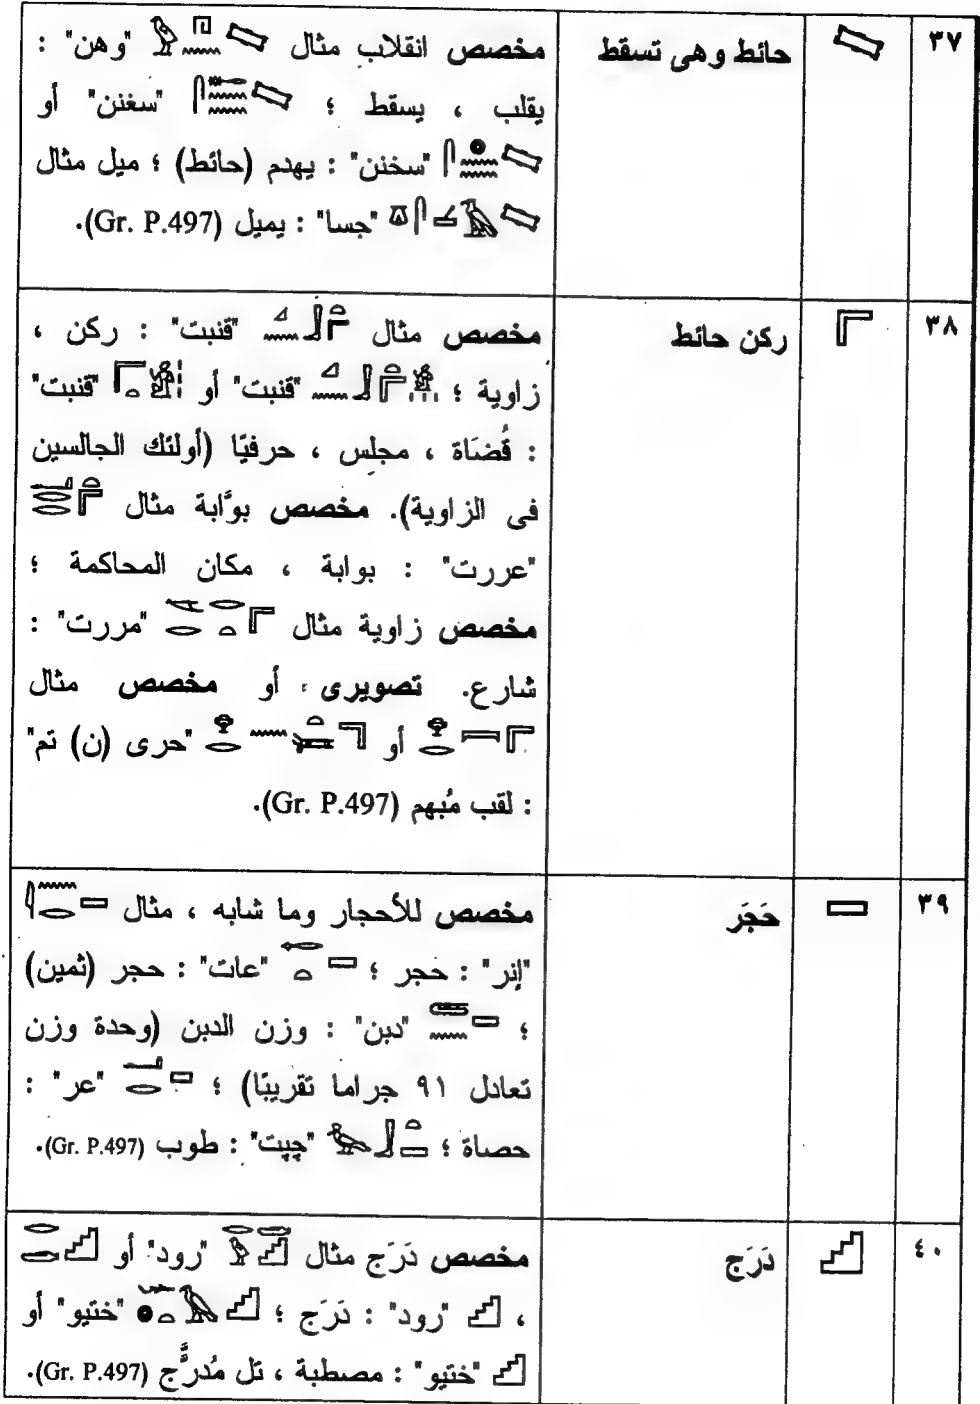 ٣٧ حائط وهى تسقط مخصص انقلاب مثال "وهن" :
يقلب ، يسقط ؛ "سغنن" أو
"سخنن" : يهدم (حائط) ؛ ميل مثال
"جسا" : يميل (Gr. P.497).
٣٨ ركن حائط مخصص مثال "قنبت" : ركن ،
زاوية ؛ "قنبت" أو "قنبت"
: قُضَاة ، مجلس ، حرفيًا (أولئك الجالسين
فى الزاوية). مخصص بوَّابة مثال
"عررت" : بوابة ، مكان المحاكمة ؛
مخصص زاوية مثال "مررت" :
شارع. تصويرى ، أو مخصص مثال
أو "حرى (ن) تم"
: لقب مُبهم (Gr. P.497).
٣٩ حَجَر مخصص للأحجار وما شابه ، مثال
"إنر" : حجر ؛ "عات" : حجر (ثمين)
؛ "دبن" : وزن الدبن (وحدة وزن
تعادل ٩١ جراما تقريبًا) ؛ "عر" :
حصاة ؛ "چپت" : طوب (Gr. P.497).
٤٠ دَرَج مخصص دَرَج مثال "رود" أو
، "رود" : دَرَج ؛ "ختيو" أو
"ختيو" : مصطبة ، تل مُدرَّج (Gr. P.497).